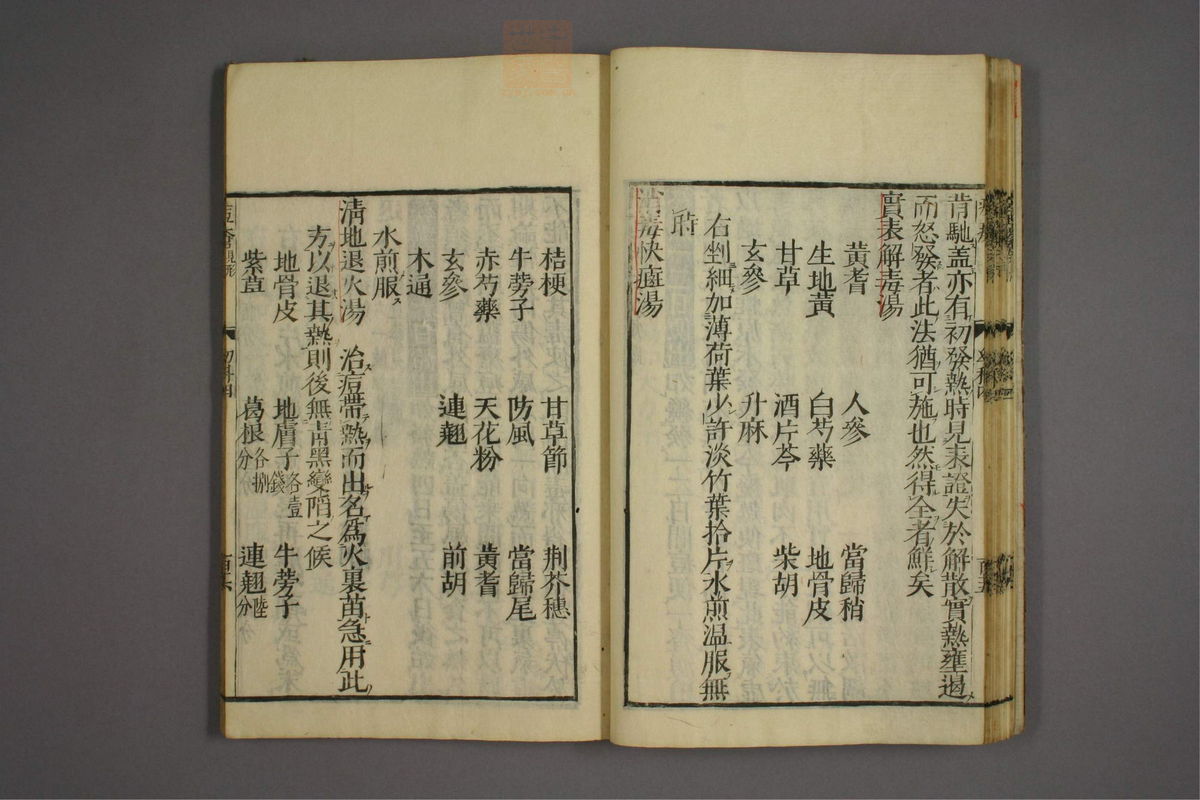 肯馳盖亦有初發熱時見表證失於解散實熱壅遏
而怒發者此法猶可施也然得全者鮮矣
實表解毒湯
黃耆 人參 當歸稍
生地黃 白芍藥 地骨皮
甘草 酒片芩 柴胡
玄參 升麻
右剉細加薄荷葉少許淡竹葉拾片水煎温服無
時
消毒快癍湯
桔梗 甘草節 荆芥穗
牛蒡子 防風 當歸尾
赤芍藥 天花粉 黃耆
玄參 連翹 前胡
木通
水煎服
清地退火湯 治痘帶熱而出名爲火裏苗急用此
方以退其熱則後無青黑變陷之候
地骨皮 地膚子各壹錢 牛蒡子
紫草 葛根各捌分 連翹陸分